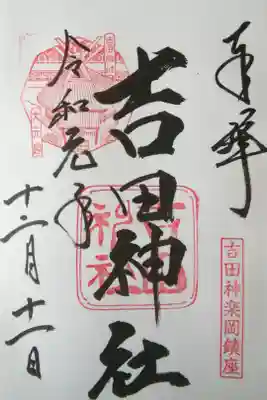 奉拝
吉田神社
吉田神社
吉田神楽岡鎮座
令和元年
十二月十一日